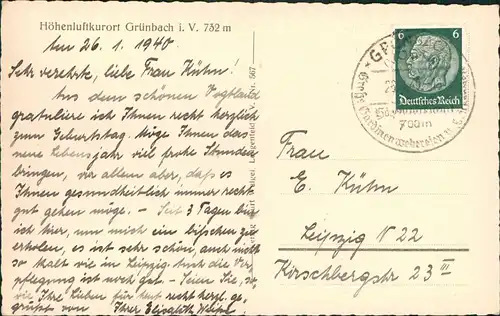 Höhenluftkurort Grünbach i. V. 732 m
Am 26. 1. 1940
Sehr verehrte, liebe Frau Kühn!
Aus dem schönen Vogtland
gratuliere ich Ihnen recht herzlich
zum Geburtstag. Möge Ihnen das
neue Lebensjahr viel frohe Stunden
bringen, vor allem aber, daß es
Ihnen gesundheitlich immer recht
gut gehen möge. – Seit 3 Tagen bin
ich hier, um mich ein bißchen zu
erholen, es ist sehr schön, auch nicht
so kalt wie in Leipzig. Auch die Ver-
pflegung ist noch gut. – Seien Sie, so-
wie Ihre Lieben für heut recht herzl. ge-
grüßt von Ihrer Elisabeth
6 6
Deutsches Reich
700m
Frau
E. Kühn
Leipzig N 22
Kirschbergstr 23 III